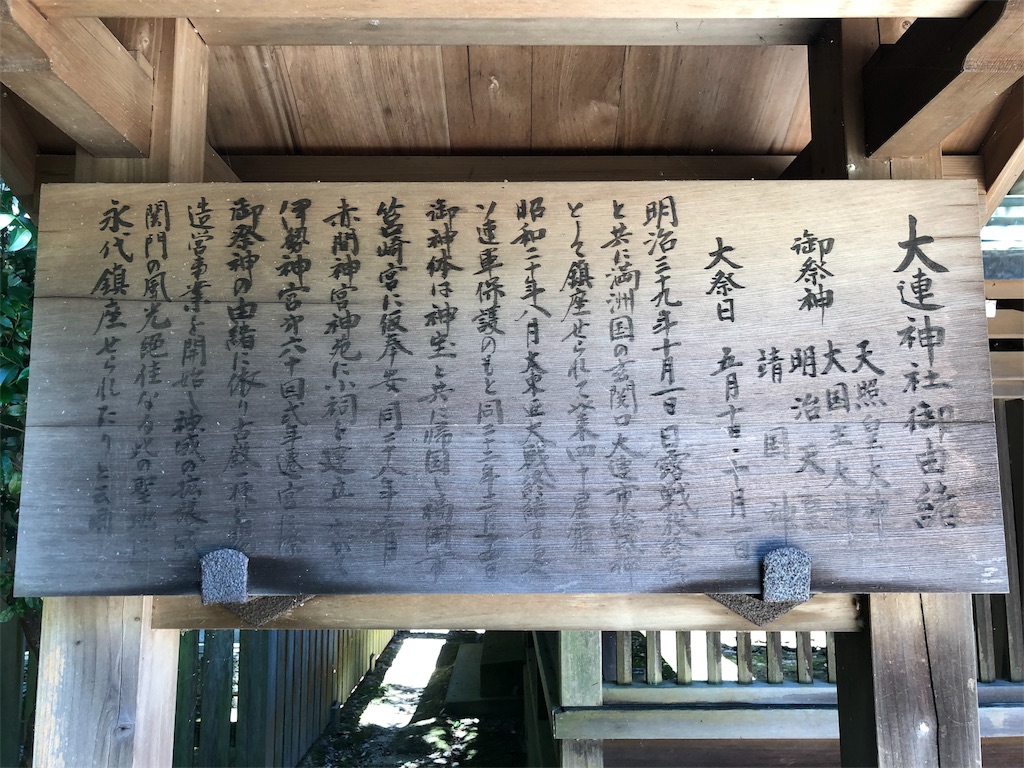 大連神社御由緒
御祭神
天照皇大神
大国主大神
明治天皇
靖国神
大祭日 五月十日・十月一日
明治三十九年十月一日日露戦役
と共に満洲国の玄関口大連市
として鎮座せられて以来四十星霜
昭和二十年八月大東亜大戦終結
ソ連軍保護のもと同二十二年
御神体は神宝と共に帰国し福岡市
筥崎宮に仮奉安同二十八年 月
赤間神宮神苑に小祠を建立
伊勢神宮第六十回式年遷宮に際
御祭神の由緒に依り古殿一棟
造営事業を開始し神威の
関門の風光絶佳なる此の聖地に
永代鎮座せられたりと云爾